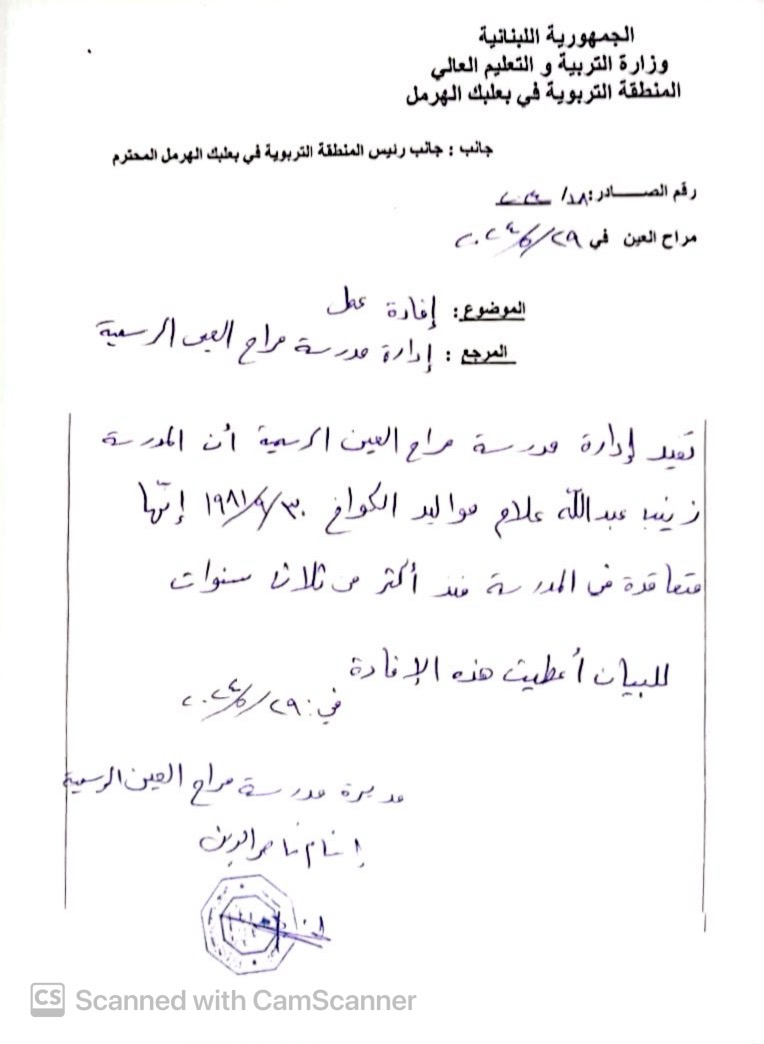 الجمهورية اللبنانية
وزارة التربية و التعليم العالي
المنطقة التربوية في بعلبك الهرمل
جانب : جانب رئيس المنطقة التربوية في بعلبك الهرمل المحترم
رقم الصـــادر: ١٨/
مراح العين في ٢٩/٥/٢٠٢٤
الموضوع: إفادة عمل
المرجع : إدارة مدرسة مراح العين الرسمية
تفيد إدارة مدرسة مراح العين الرسمية أن المدرسة
زينب عبدالله علام مواليد الكواخ ٣٠/٩/١٩٨١ إنّها
متعاقدة في المدرسة منذ أكثر من ثلاث سنوات
للبيان أعطيت هذه الإفادة
في: ٢٩/٥/٢٠٢٤
مديرة مدرسة مراح العين الرسمية
ناصرالدين
CS Scanned with CamScanner